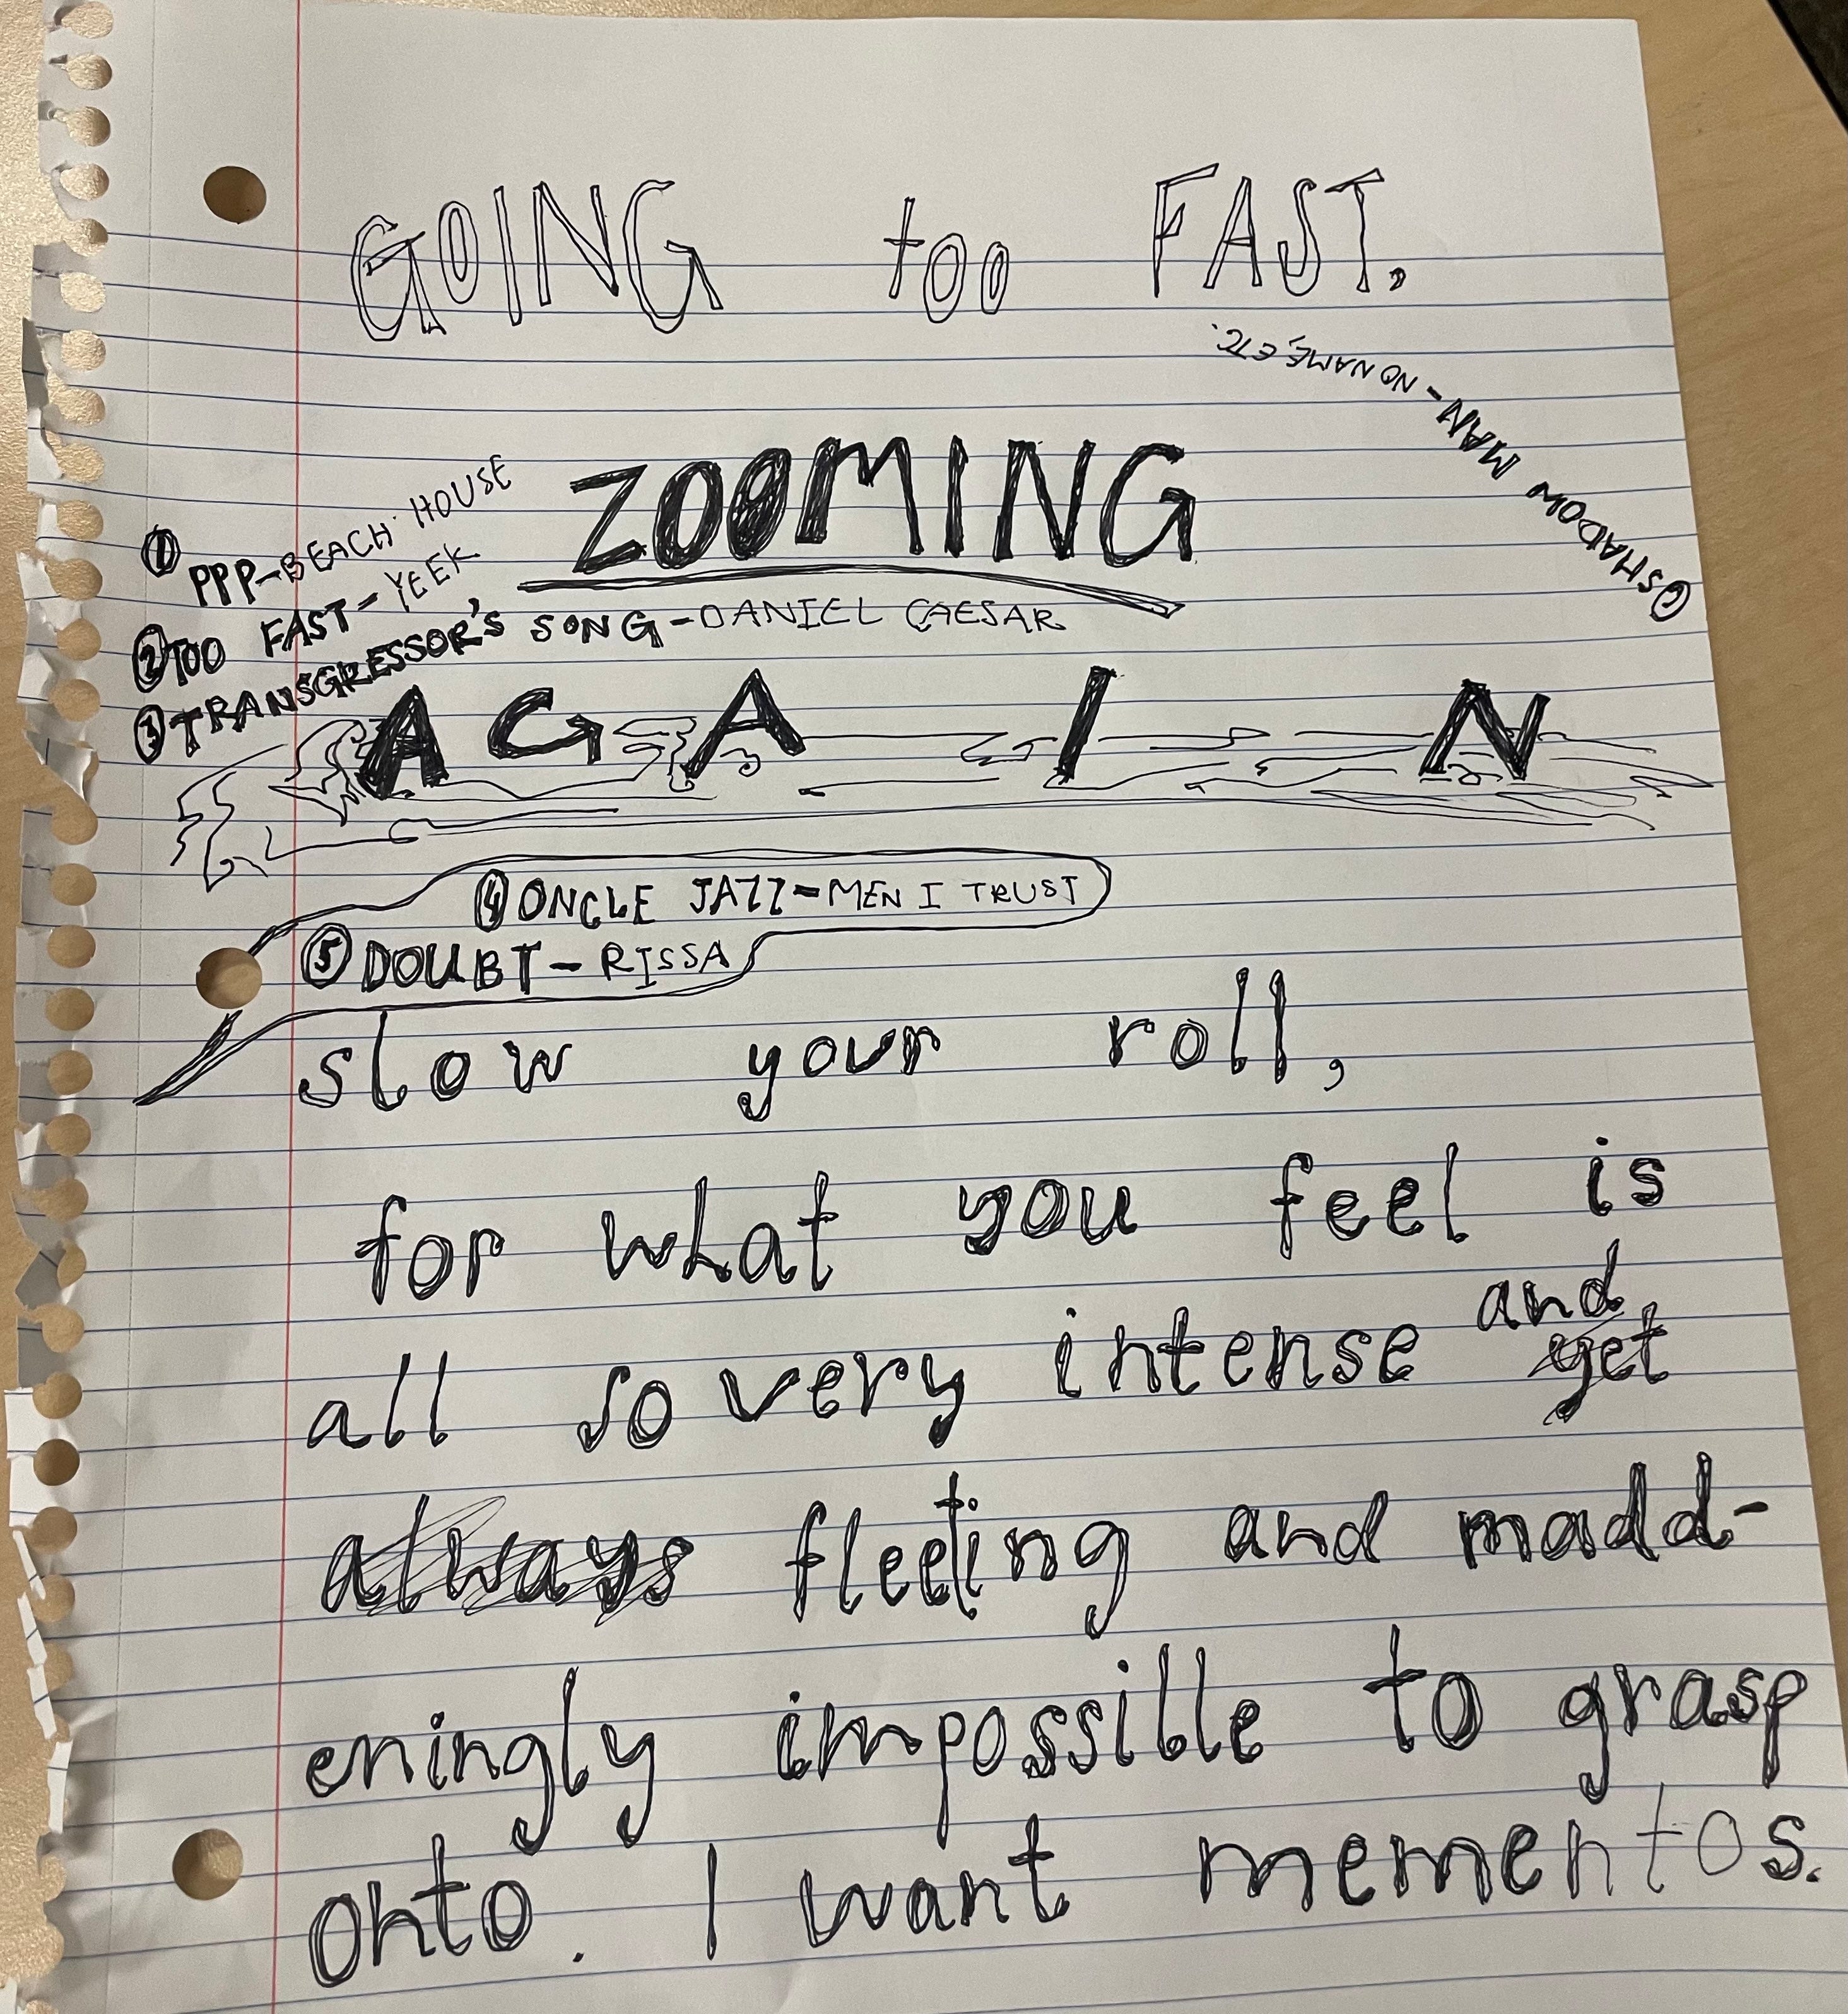 GOING too FAST.
⑥ SHADOW MAN - NO NAME, ETC.
ZOOMING
① PPP - BEACH HOUSE
② TOO FAST - YEEK
③ TRANSGRESSOR'S SONG - DANIEL CAESAR
AGAIN
④ ONCLE JAZZ - MEN I TRUST
⑤ DOUBT - RISSA
slow your roll,
for what you feel is
all so very intense and yet
always fleeting and madd-
eningly impossible to grasp
onto. I want mementos.